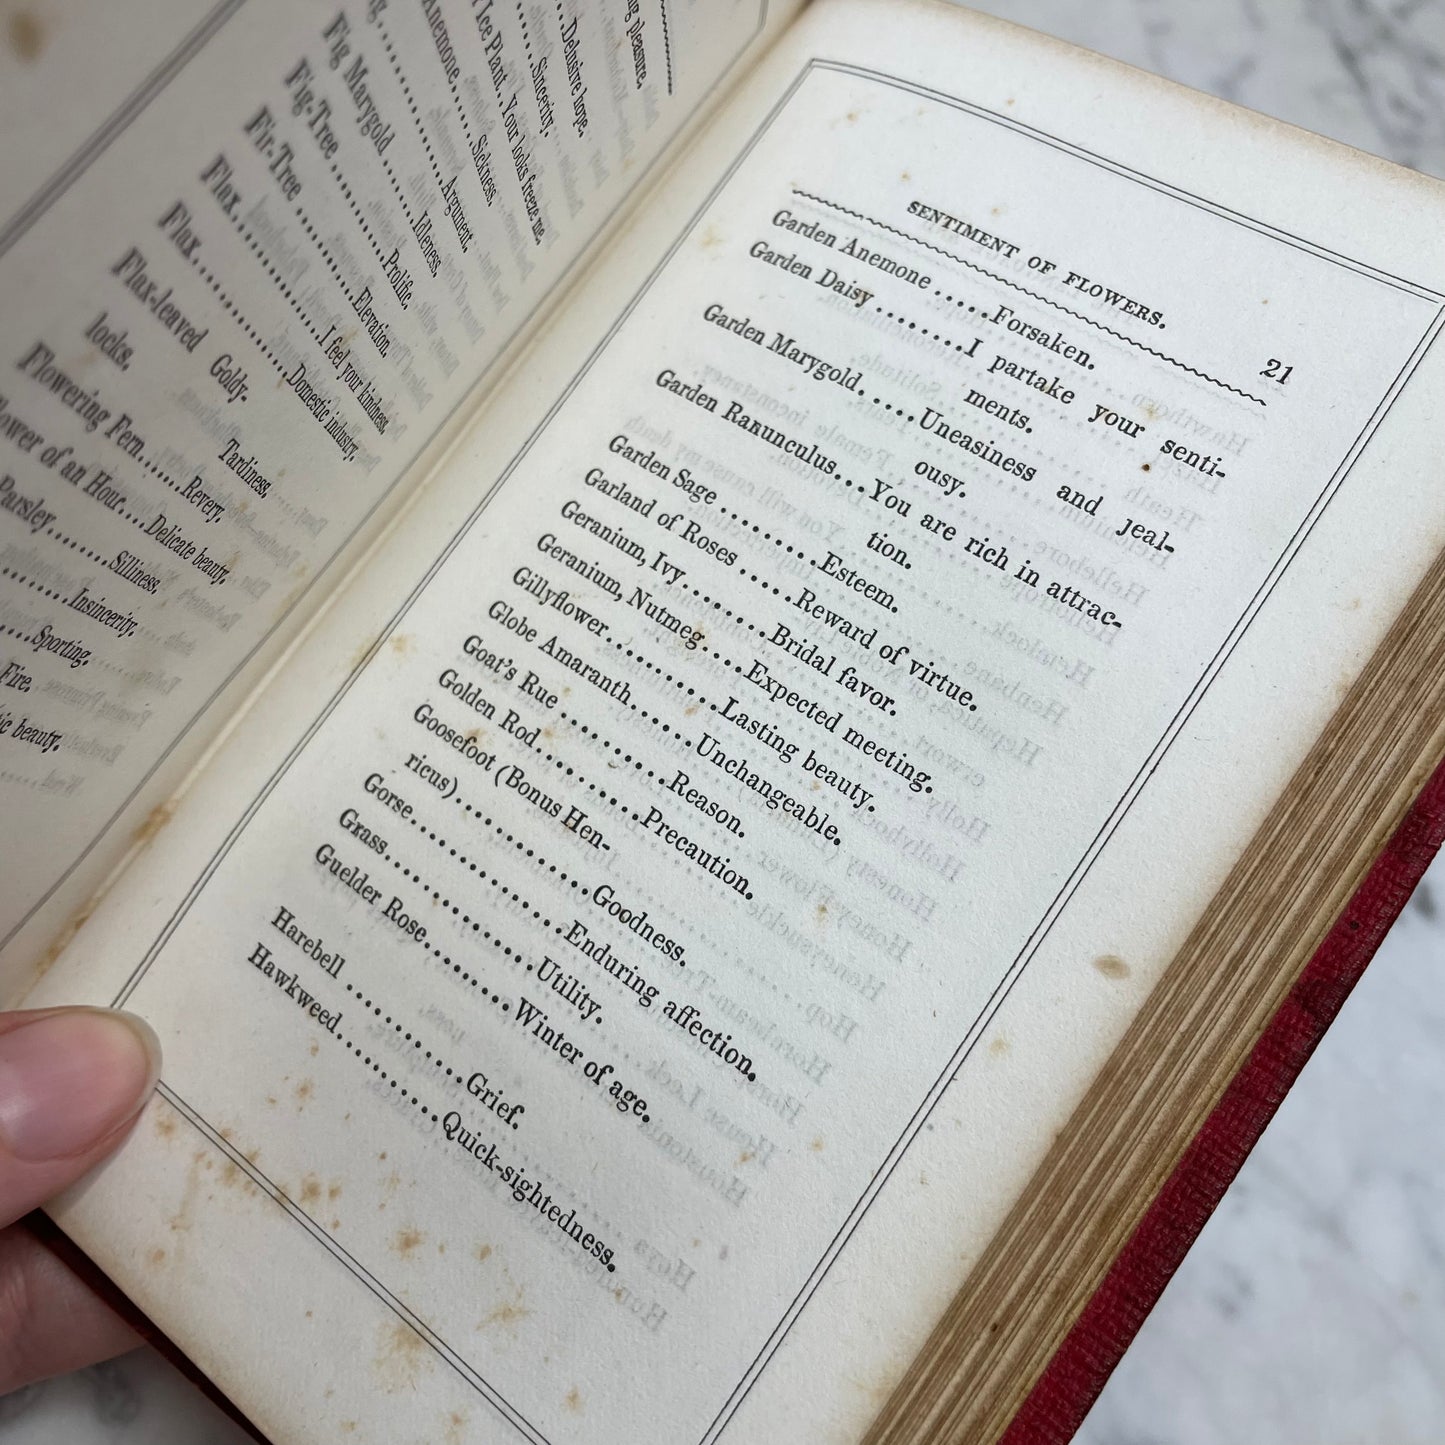 ng pleasure.
Delusive hope.
Sincerity.
Ice Plant...Your looks freeze me.
Anemone......Sickness.
Argument.
Fig Marygold........Idleness.
Fig-Tree............Prolific.
Fir-Tree............Elevation.
Flax................I feel your kindness.
Flax................Domestic industry.
Flax-leaved Goldy-
locks. Tardiness.
Flowering Fern.......Revery.
lower of an Hour....Delicate beauty.
Parsley........Silliness.
.......Insincerity.
.....Sporting.
Fire.
ic beauty.
SENTIMENT OF FLOWERS. 21
Garden Anemone.....Forsaken.
Garden Daisy........I partake your senti-
ments.
Garden Marygold.....Uneasiness and jeal-
ousy.
Garden Ranunculus...You are rich in attrac-
tion.
Garden Sage.........Esteem.
Garland of Roses.....Reward of virtue.
Geranium, Ivy........Bridal favor.
Geranium, Nutmeg....Expected meeting.
Gillyflower...........Lasting beauty.
Globe Amaranth......Unchangeable.
Goat's Rue..........Reason.
Golden Rod..........Precaution.
Goosefoot (Bonus Hen-
ricus)............Goodness.
Gorse..............Enduring affection.
Grass..............Utility.
Guelder Rose........Winter of age.
Harebell...........Grief.
Hawkweed..........Quick-sightedness.